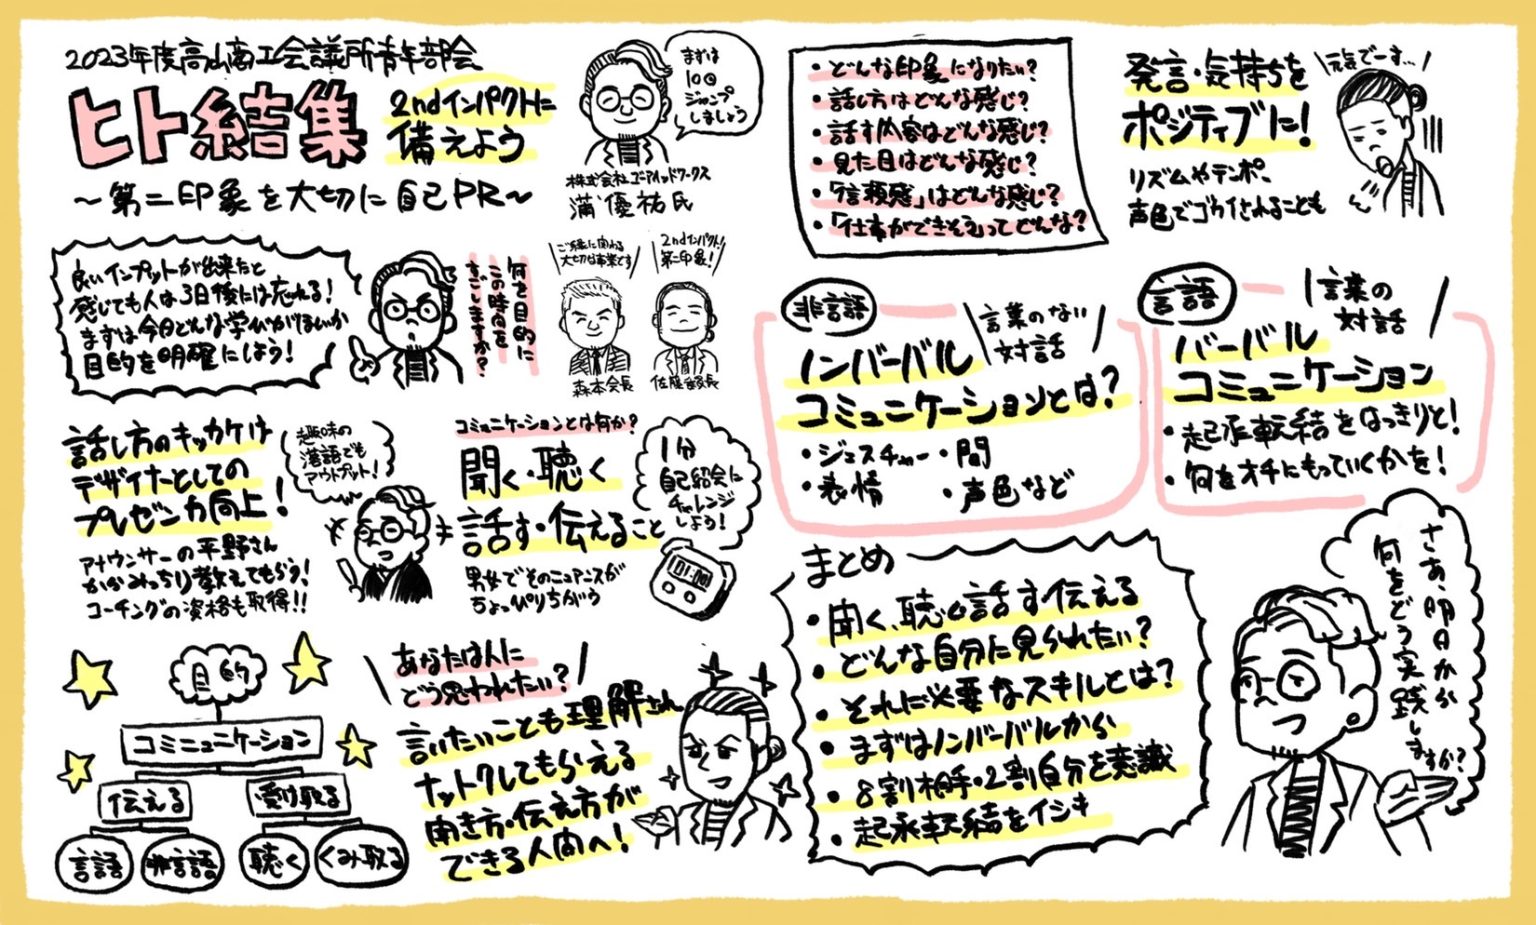 2023年度高山商工会議所青年部会
ヒト結集
2ndインパクトに
備えよう
〜第二印象を大切に自己PR〜
まずは
10回
ジャンプ
しましょう
株式会社ユニアイッドワークス
満 優祐氏
良いインプットが出来たと
感じても人は3日後には忘れる!
まずは今日どんな学びがほしいか
目的を明確にしよう!
何を目的に
この時間を
すごしますか?
ご縁に関わる
大切な事業です
森本会長
2ndインパクト!
第二印象!
佐藤部長
話し方のキッカケは
デザイナーとしての
プレゼン力向上!
アナウンサーの平野さん
からみっちり教えてもらう!
コーチングの資格も取得!!
趣味の
落語でも
アウトプット!
コミュニケーションとは何か?
聞く・聴く
話す・伝えること
男女でそのニュアンスが
ちょっぴりちがう
1分
自己紹介に
チャレンジ
しよう!
01:00
目的
コミニュニケーション
伝える
受け取る
言語
非言語
聴く
くみ取る
あなたは人に
どう思われたい?
言いたいことも理解され
ナットクしてもらえる
聞き方・伝え方が
できる人間へ!
・どんな印象になりたい?
・話し方はどんな感じ?
・話す内容はどんな感じ?
・見た目はどんな感じ?
・「信頼感」はどんな感じ?
・「仕事ができそう」ってどんな?
発言・気持ちを
ポジティブに!
リズムやテンポ、
声色でゴカイされることも
元気でーす…
非言語
言葉のない
対話
ノンバーバル
コミュニケーションとは?
・ジェスチャー・間
・表情 ・声色など
言語
言葉の
対話
バーバル
コミュニケーション
・起承転結をはっきりと!
・何をオチにもっていくかを!
まとめ
・聞く、聴く、話す、伝える
・どんな自分に見られたい?
・それに必要なスキルとは?
・まずはノンバーバルから
・8割相手・2割自分を意識
・起承転結をイシキ
さあ、明日から
何をどう実践しますか?